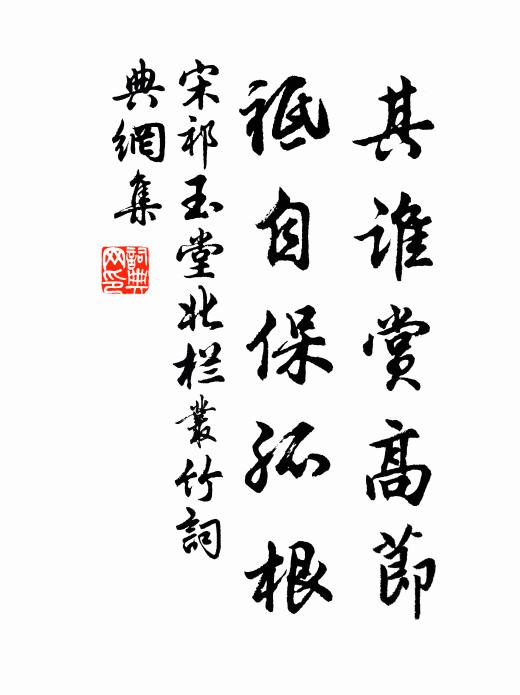 其誰賞高節
祇自保孤根
宋祁玉堂北栏叢竹詞
典網集
詞典
网印